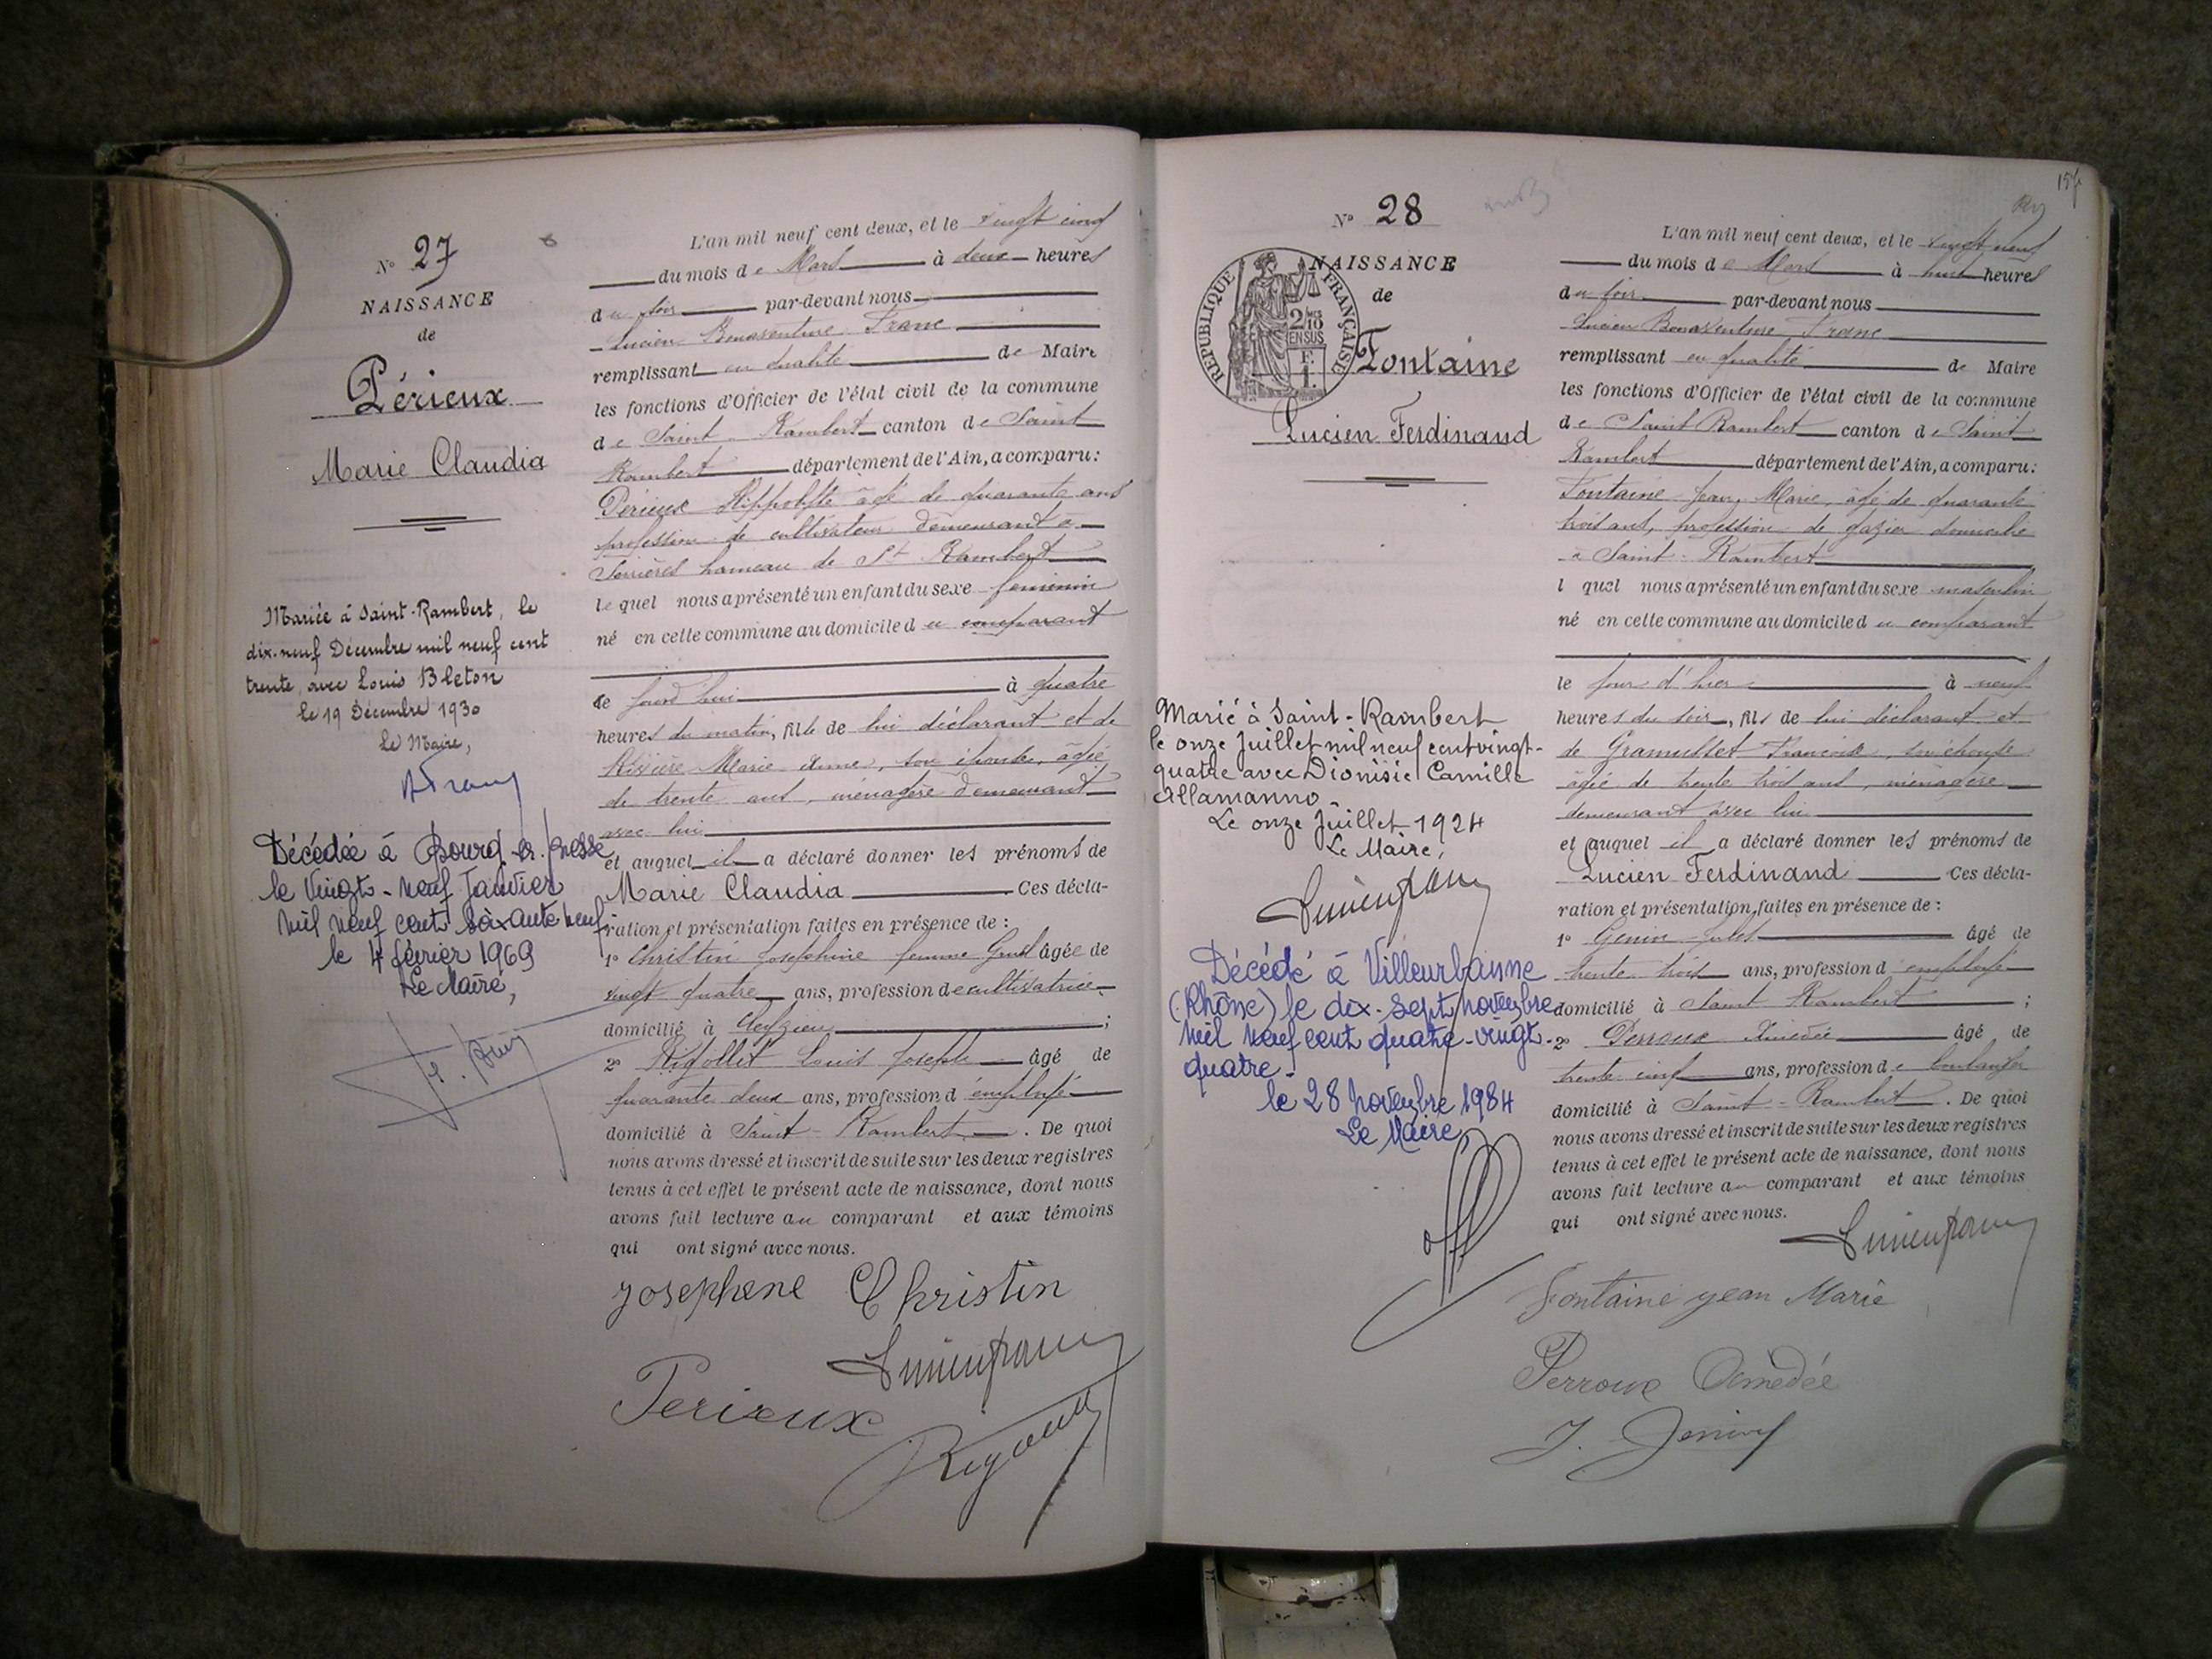 N° 27
NAISSANCE
de
Périeux
Marie Claudia
Mariée à Saint-Rambert, le
dix-neuf Décembre mil neuf cent
trente, avec Louis Bleton
Le 19 Décembre 1930
Le Maire,
Décédée à Bourg-en-Bresse
le Vingt-neuf Janvier
mil neuf cent soixante neuf
le 4 février 1969
Le Maire,
L'an mil neuf cent deux, et le vingt cinq
du mois de Mars à deux heures
du soir par-devant nous
Lucien Bonaventure Franc
remplissant en qualité de Maire
les fonctions d'Officier de l'état civil de la commune
de Saint Rambert canton de Saint
Rambert département de l'Ain, a comparu:
Périeux Hippolyte âgé de quarante ans
profession de cultivateur demeurant à
Serrières hameau de St Rambert
lequel nous a présenté un enfant du sexe feminin
né en cette commune au domicile du comparant
le jourd'hui à quatre
heures du matin, fille de lui déclarant et de
Rivière Marie Anne, son épouse, âgée
de trente ans, ménagère demeurant
avec lui
et auquel il a déclaré donner les prénoms de
Marie Claudia Ces décla-
ration et présentation faites en présence de:
1° Christin Josephine femme âgée de
vingt quatre ans, profession de cultivatrice
domicilié à Cleyzieu;
2° Rigollet Louis Joseph âgé de
quarante deux ans, profession d'employé
domicilié à Saint-Rambert. De quoi
nous avons dressé et inscrit de suite sur les deux registres
tenus à cet effet le présent acte de naissance, dont nous
avons fait lecture au comparant et aux témoins
qui ont signé avec nous.
Josephene Christin
Lucien Franc
Perieux
157
N° 28
NAISSANCE
de
RÉPUBLIQUE FRANÇAISE
2/10 EN SUS
Fontaine
Lucien Ferdinand
Marié à Saint-Rambert
le onze Juillet mil neuf cent vingt-
quatre avec Dionisie Camille
Allamanno
Le onze Juillet 1924
Le Maire,
Lucien Franc
Décédé à Villeurbanne
(Rhône) le dix-sept novembre
mil neuf cent quatre-vingt-
quatre.
le 28 novembre 1984
Le Maire
L'an mil neuf cent deux, et le vingt neuf
du mois de Mars à huit heures
du soir par-devant nous
Lucien Bonaventure Franc
remplissant en qualité de Maire
les fonctions d'Officier de l'état civil de la commune
de Saint Rambert canton de Saint
Rambert département de l'Ain, a comparu:
Fontaine Jean Marie, âgé de quarante
trois ans, profession de gazier domicilié
à Saint-Rambert
l quel nous a présenté un enfant du sexe masculin
né en cette commune au domicile du comparant
le jour d'hier à neuf
heures du soir, fils de lui déclarant et
de Françoise, son épouse
âgée de trente trois ans, ménagère
demeurant avec lui
et auquel il a déclaré donner les prénoms de
Lucien Ferdinand Ces décla-
ration et présentation faites en présence de:
1° Genin Jules âgé de
trente trois ans, profession d employé
domicilié à Saint Rambert;
2° Perroux Amédée âgé de
trente cinq ans, profession de boulanger
domicilié à Saint-Rambert. De quoi
nous avons dressé et inscrit de suite sur les deux registres
tenus à cet effet le présent acte de naissance, dont nous
avons fait lecture au comparant et aux témoins
qui ont signé avec nous.
Lucien Franc
Fontaine jean Marie
Perroux Amédée
J. Genin